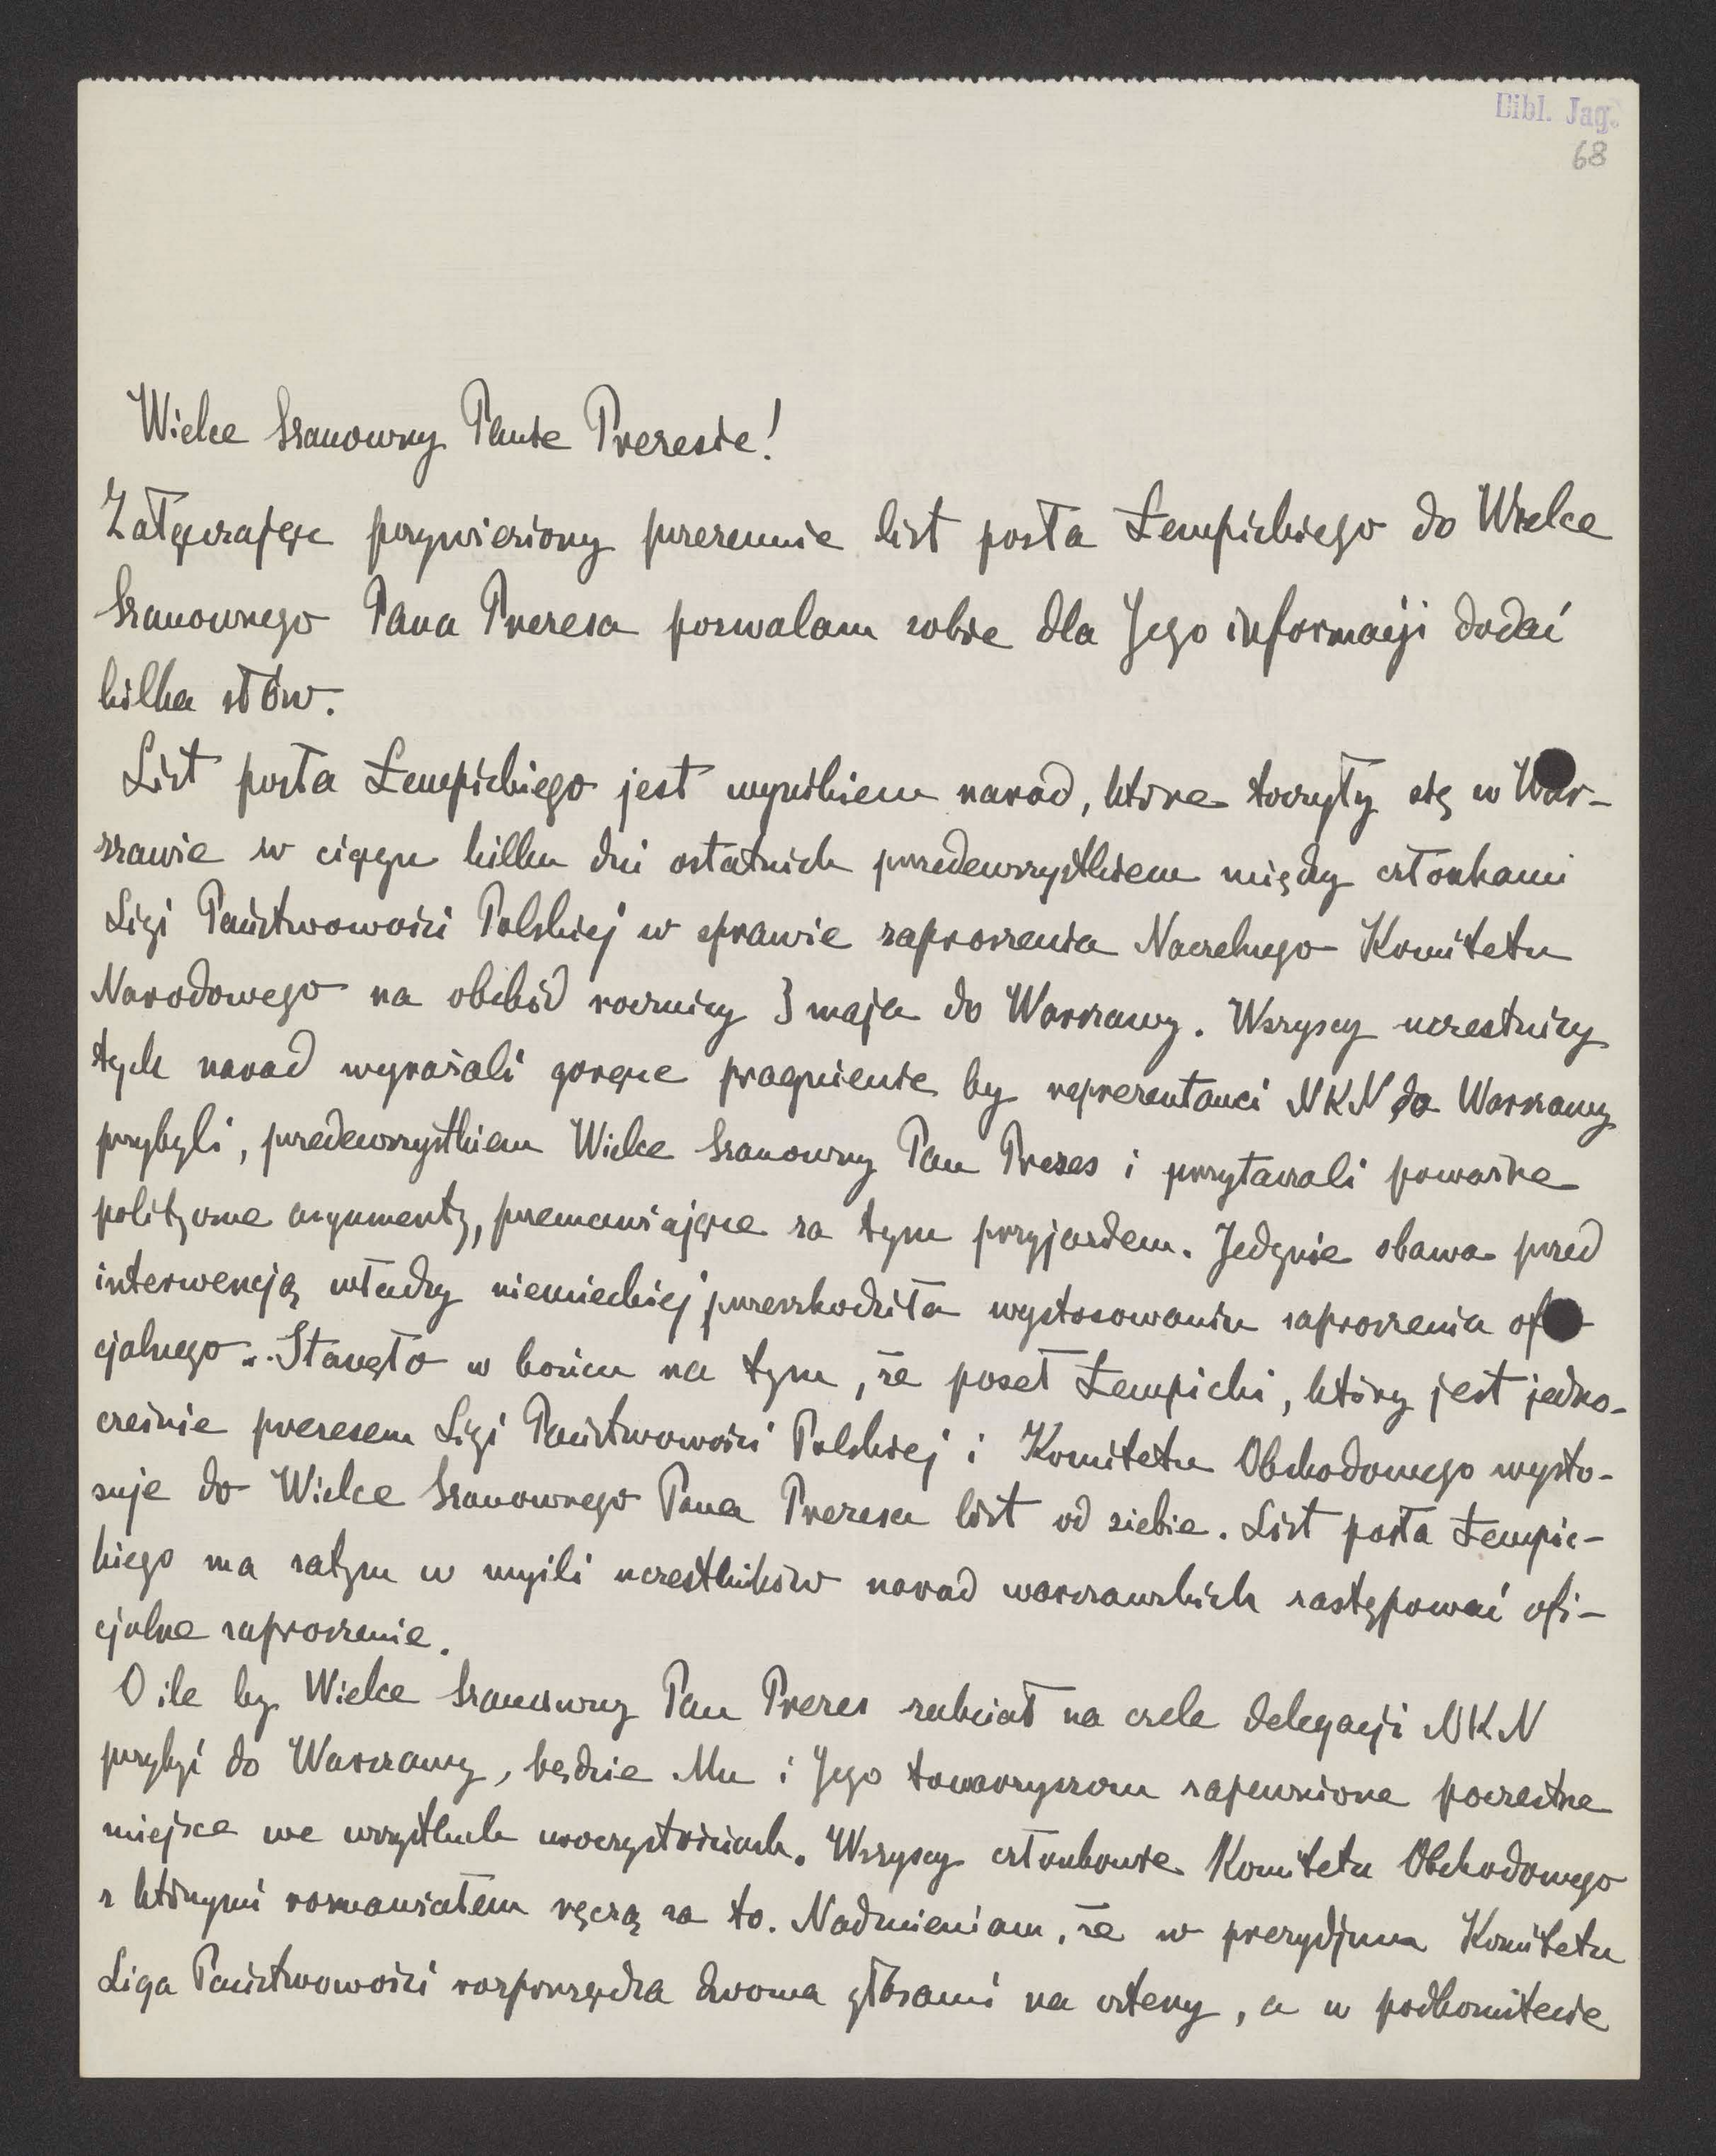 Bibl. Jag.
68
Wielce Szanowny Panie Prezesie!
Załączając przywieziony przezemnie list posła Łempickiego do Wielce
Szanownego Pana Prezesa pozwalam sobie dla Jego informacji dodać
kilka słów.
List posła Łempickiego jest wynikiem narad, które toczyły się w War-
szawie w ciągu kilku dni ostatnich przedewszystkiem między członkami
Ligi Państwowości Polskiej w sprawie zaproszenia Naczelnego Komitetu
Narodowego na obchód rocznicy 3 maja do Warszawy. Wszyscy uczestnicy
tych narad wyrażali gorące pragnienie by reprezentanci NKN do Warszawy
przybyli, przedewszystkiem Wielce Szanowny Pan Prezes i przytaczali poważne
polityczne argumenty, przemawiające za tym przyjazdem. Jedynie obawa przed
interwencją władzy niemieckiej przeszkodziła wystosowaniu zaproszenia ofi-
cjalnego. Stanęło w końcu na tym, że poseł Łempicki, który jest jedno-
cześnie prezesem Ligi Państwowości Polskiej i Komitetu Obchodowego wysto-
suje do Wielce Szanownego Pana Prezesa list od siebie. List posła Łempic-
kiego ma zatym w myśli uczestników narad warszawskich zastępować ofi-
cjalne zaproszenie.
O ile by Wielce Szanowny Pan Prezes zechciał na czele delegacji NKN
przybyć do Warszawy, będzie Mu i Jego towarzyszom zapewnione poczestne
miejsce we wszystkich uroczystościach. Wszyscy członkowie Komitetu Obchodowego
z którymi rozmawiałem ręczą za to. Nadmieniam, że w prezydjum Komitetu
Liga Państwowości rozporządza dwoma głosami na cztery, a w podkomitecie